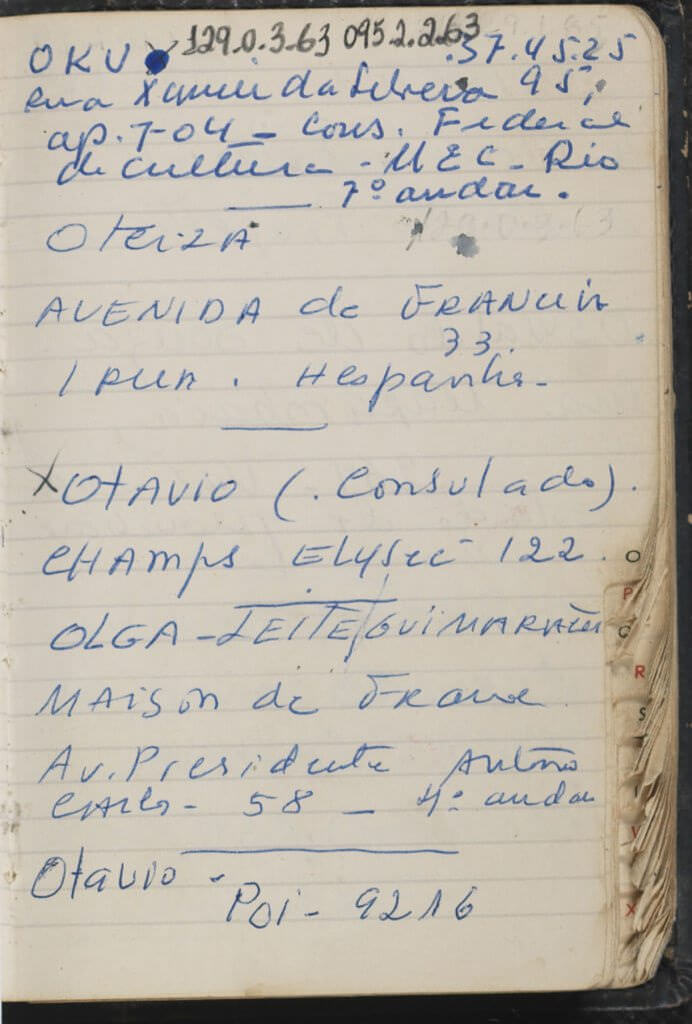 129.0.3-63 095.2.2.63
OKU .37.45.25
rua Xavier da Silveira 95,
ap. 704 - Cons. Federal
de cultura - MEC - Rio
7º andar.
OteizA
AVENIDA de FRANCIA
33.
IRUN. Hespanha-
X OtAVIO (. Consulado).
CHAMPS ELYSEE 122.
OLGA - LEITE/GUIMARAES
MAISON de France
Av. Presidente Antônio
CARLOS - 58 - 4º andar
Otavio -
POI - 9216
O
P
R
S
V
X